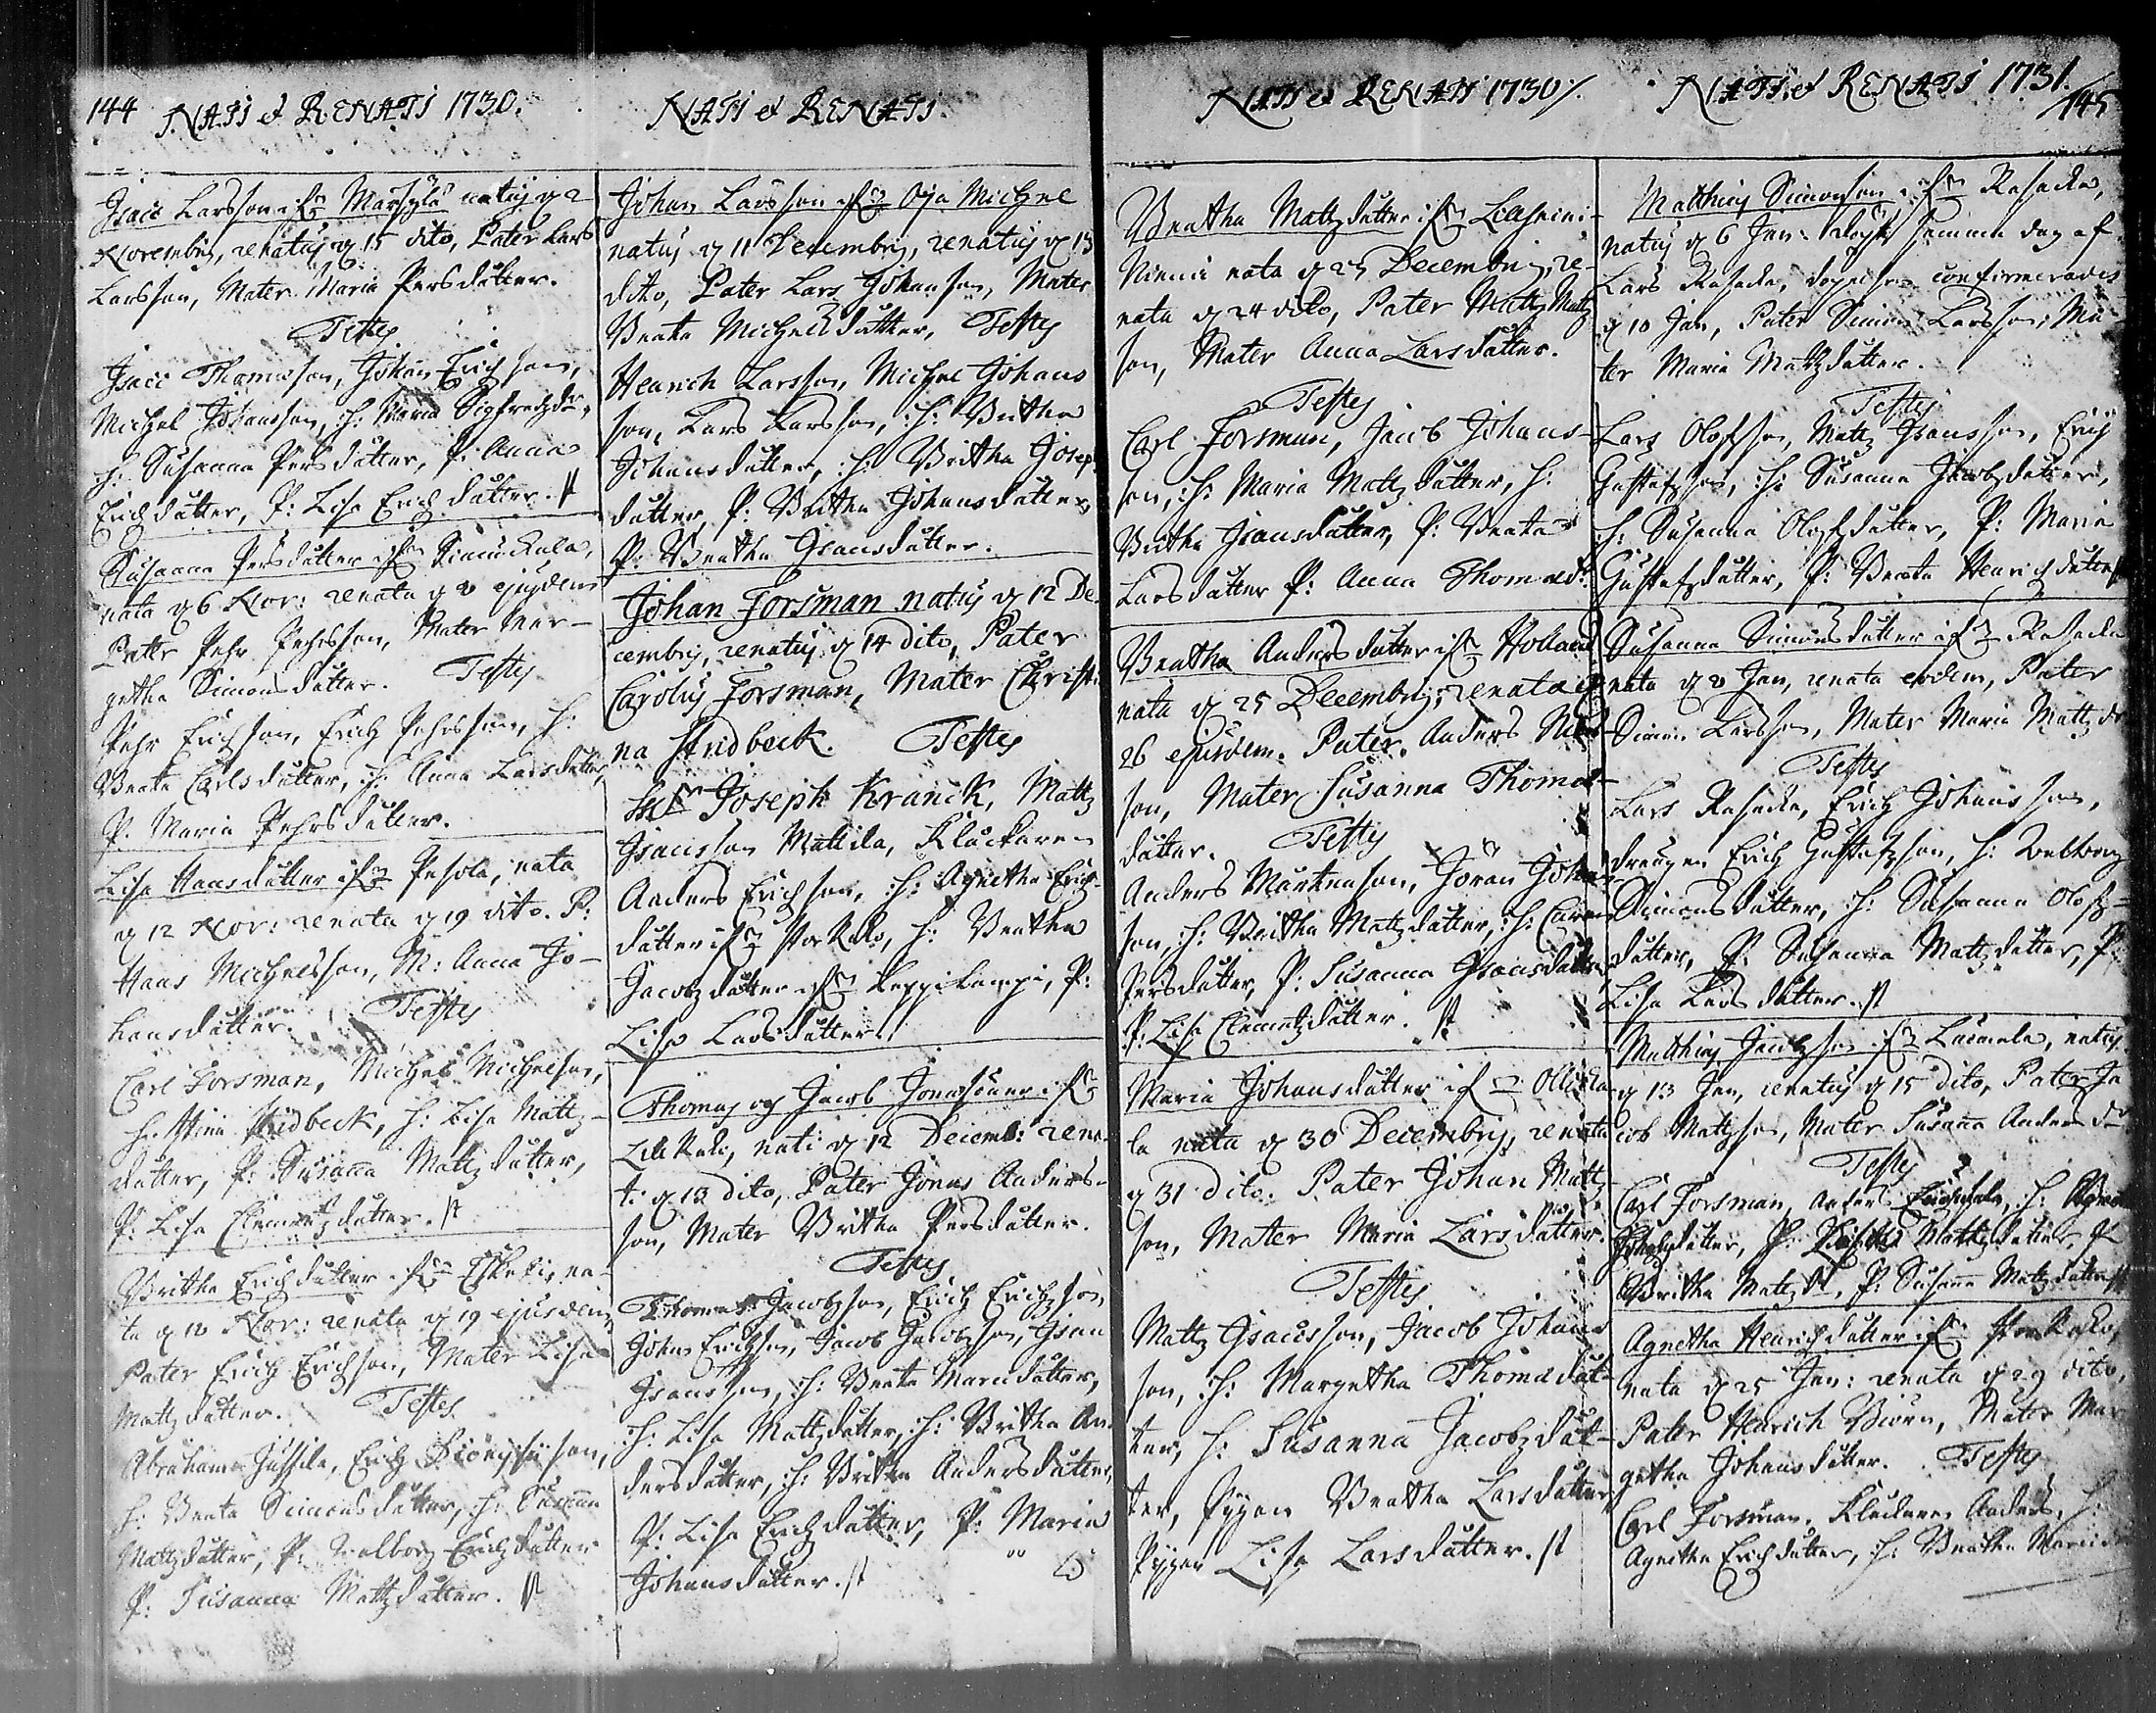 144 NATI et RENATI 1730.
Isaac Larsson ifrån natus d 2
Novembris, renatus d 15 dito, Pater Lars
Larsson, Mater Maria Persdotter.
Testes
Isaac Thomasson, Johan Erichsson,
Michel Johansson, h: Maria Sigfredzdr,
h: Susanna Persdotter, P: Anna
Erichdotter, P: Lisa Erichdotter.
Susanna Persdotter ifrån
nata d 6 Nov: renata d 8 ejusdem
Pater Pehr Pehrsson, Mater Mar-
getha Simonsdotter. Testes
Pehr Erichsson, Erich Pehrsson, h:
Beata Carlsdotter, h: Anna Larsdotter,
P: Maria Pehrsdotter.
Lisa Hansdotter ifrån Pesola, nata
d 12 Nov: renata d 19 dito. P:
Hans Michelsson, M: Anna Jo-
hansdotter. Testes
Carl Forsman, Michel Michelsson,
h: Stina Stridbeck, h: Lisa Mattz-
dotter, P: Susanna Mattzdotter,
P: Lisa Clemetzdotter.
Britha Erichdotter ifrån na-
ta d 18 Nov: renata d 19 ejusdem,
Pater Erich Erichsson, Mater Lisa
Mattzdotter. Testes
Abraham Jussila, Erich
h: Beata Simonsdotter, h: Susanna
Mattzdotter, P: Walborg Erichdotter
P: Susanna Mattzdotter.
NATI et RENATI.
Johan Larsson ifrån Michel
natus d 11 Decembris, renatus d 13
dito, Pater Lars Johansson, Mater
Beata Michelsdotter, Testes
Henrich Larsson, Michel Johans
son, Lars Larsson, h: Britha
Johansdotter, h: Britha Joseps
dotter, P: Britha Johansdotter,
P: Beatha Isansdotter.
Johan Forsman natus d 12 De-
cembris, renatus d 14 dito, Pater
Carolus Forsman, Mater Christi-
na Stridbeck. Testes
Joseph Kranck, Mattz
Isacsson Mattila, Klockaren
Anders Erichson, h: Agnetha Erich-
dotter ifrån h: Beatha
Jacobzdotter ifrån P:
Lisa Larsdotter.
Thomas og Jacob Jonæsöner ifrån
nati d 12 Decemb: rena-
ti d 13 dito, Pater Jonas Anders-
son, Mater Britha Persdotter.
Testes
Thomas Jacobzson, Erich Erichzson,
Johan Erichson, Jacob Jacobzson, Isan
Isansson, h: Beata
h: Lisa Mattzdotter, h: Britha An-
dersdotter, h: Britha Andersdotter,
P: Lisa Erichdotter, P: Maria
Johansdotter.
NATI et RENATI 1730/.
Beatha Mattzdotter ifrån
nata d 23 Decembris, re-
nata d 24 dito, Pater Mattz Mattz
son, Mater Anna Larsdotter.
Testes
Carl Forsman, Jacob Johans-
son, h: Maria Mattzdotter, h:
Britha Isansdotter, P: Beata
Larsdotter P: Anna Thomædr.
Beatha Andersdotter ifrån
nata d 25 Decembris, renata d
26 ejusdem. Pater Anders
son, Mater Susanna Thomæ-
dotter. Testes
Anders Mårtenson, Jöran Johan-
son, h: Britha Mattzdotter, h:
Persdotter, P: Susanna Isansdotter,
P: Lisa Clemetzdotter.
Maria Johansdotter ifrån Ollicka-
la nata d 30 Decembris, renata
d 31 dito. Pater Johan Mattz
son, Mater Maria Larsdotter.
Testes
Mattz Isacsson, Jacob Johans
son, h: Margetha Thomædot-
ter, h: Susanna Jacobzdot-
ter, Pigan Beatha Larsdotter,
Pigan Lisa Larsdotter.
NATI et RENATI 1731. 145
Matthias Simonson ifrån
natus d 6 Jan: döpt samma dag af
Lars confirmerades
d 10 Jan, Pater Simon Larsson, Ma-
ter Maria Mattzdotter.
Testes
Lars Olofsson, Mattz Isansson, Erich
Gustafsson, h: Susanna Jacobzdotter,
h: Susanna Olofsdotter, P: Maria
Gustafsdotter, P: Beata Henrichdotter
Susanna Simonsdotter ifrån
nata d 8 Jan, renata eodem, Pater
Simon Larsson, Mater Maria Mattzdr
Testes
Lars Erich Johansson,
drengen Erich Gustafsson, h: Walborg
Simonsdotter, h: Susanna Olofs-
dotter, P: Susanna Mattzdotter, P:
Lisa Larsdotter.
Matthias Jacobzson ifrån natus
d 13 Jan, renatus d 15 dito, Pater Ja
cob Mattzson, Mater Susanna Andersdr
Testes
Carl Forsman, Anders h:
P: Mattzdotter, P:
Britha Mattzdr, P: Susanna Mattzdotter
Agnetha Henrichdotter ifrån
nata d 25 Jan: renata d 29 dito,
Pater Henrich Mater Mar
getha Johansdotter. Testes
Carl Forsman, Klockaren Anders, h:
Agnetha Erichdotter, h: Beatha